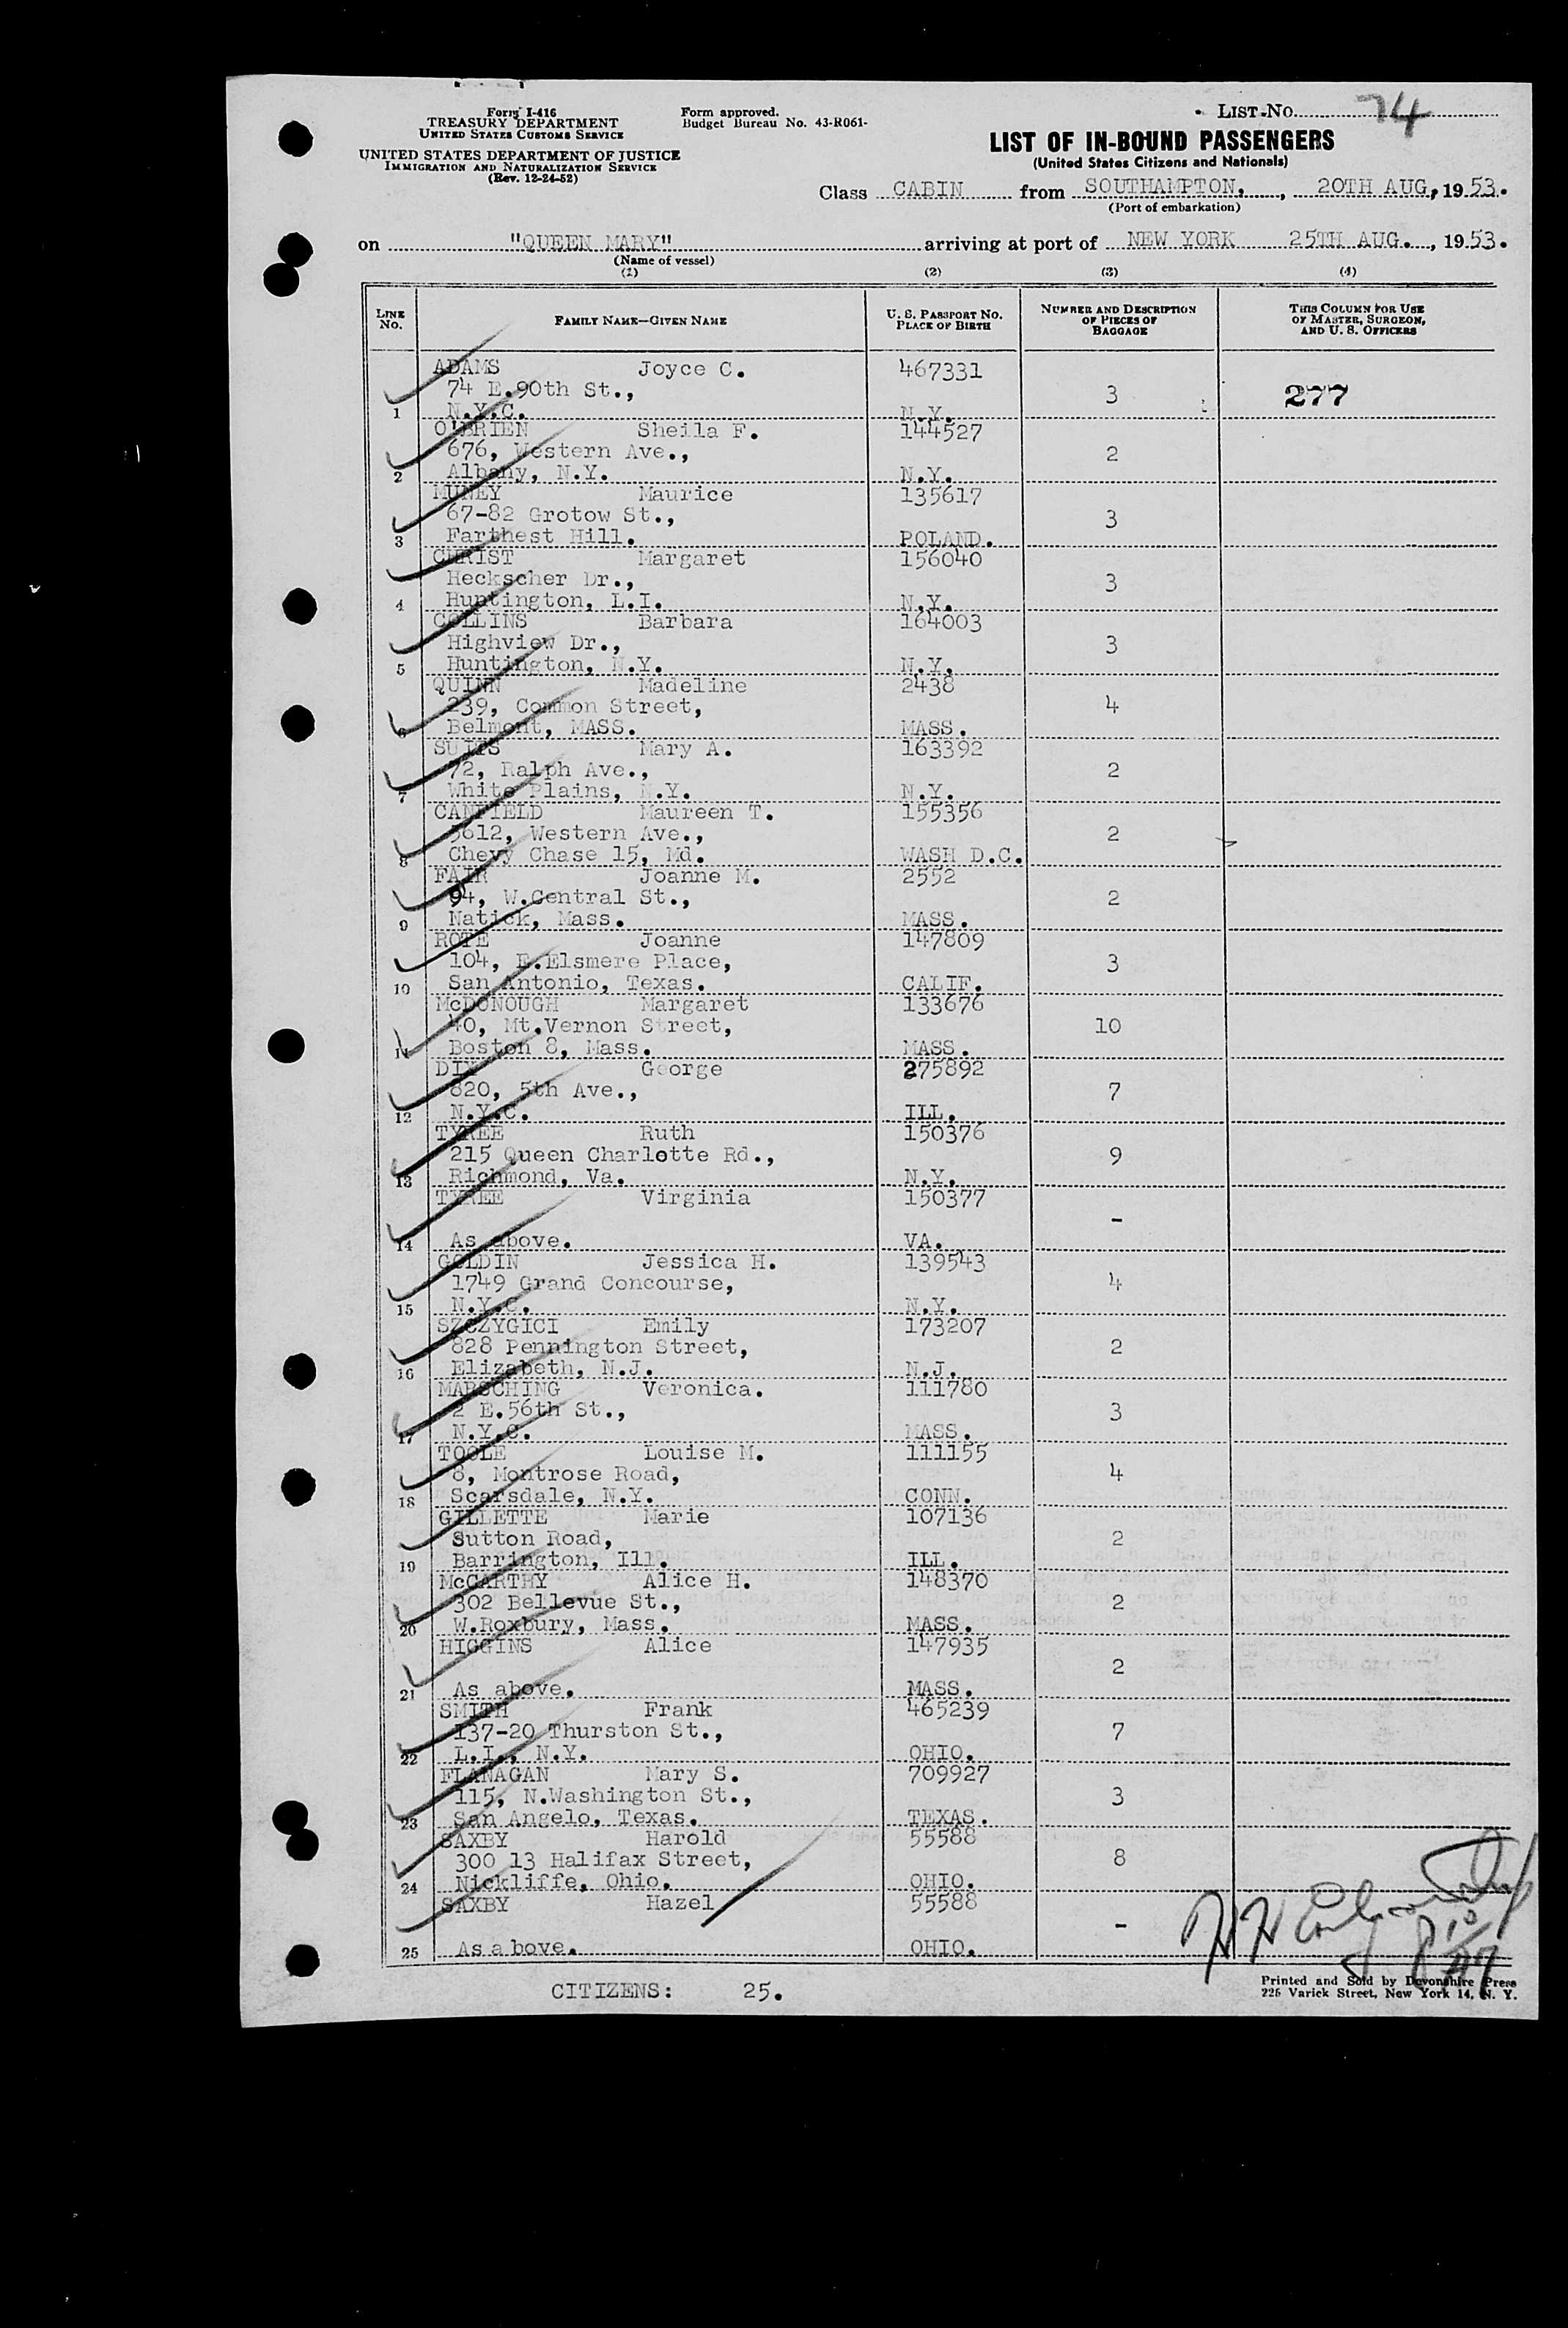 Form I-416
TREASURY DEPARTMENT
UNITED STATES CUSTOMS SERVICE
UNITED STATES DEPARTMENT OF JUSTICE
IMMIGRATION AND NATURALIZATION SERVICE
(Rev. 12-24-52)
Form approved.
Budget Bureau No. 43-R061-
LIST NO. 74
LIST OF IN-BOUND PASSENGERS
(United States Citizens and Nationals)
Class CABIN from SOUTHAMPTON, , 20TH AUG, 19 53.
(Port of embarkation)
on "QUEEN MARY" arriving at port of NEW YORK 25TH AUG. , 19 53.
(Name of vessel)
(1) (2) (3) (4)
LINE NO. FAMILY NAME—GIVEN NAME U. S. PASSPORT NO. PLACE OF BIRTH NUMBER AND DESCRIPTION OF PIECES OF BAGGAGE THIS COLUMN FOR USE OF MASTER, SURGEON, AND U. S. OFFICERS
ADAMS Joyce C. 467331
74 E.90th St., 3 277
1 N.Y.C. N.Y.
O'BRIEN Sheila F. 144527
676, Western Ave., 2
2 Albany, N.Y. N.Y.
MUNEY Maurice 135617
67-82 Grotow St., 3
3 Farthest Hill. POLAND.
CHRIST Margaret 156040
Heckscher Dr., 3
4 Huntington, L.I. N.Y.
COLLINS Barbara 164003
Highview Dr., 3
5 Huntington, N.Y. N.Y.
QUINN Madeline 2438
239, Common Street, 4
6 Belmont, MASS. MASS.
Mary A. 163392
72, Ralph Ave., 2
7 White Plains, N.Y. N.Y.
CANFIELD Maureen T. 155356
5612, Western Ave., 2
8 Chevy Chase 15, Md. WASH D.C.
FAIR Joanne M. 2552
94, W.Central St., 2
9 Natick, Mass. MASS.
ROTE Joanne 147809
104, E.Elsmere Place, 3
10 San Antonio, Texas. CALIF.
McDONOUGH Margaret 133676
40, Mt.Vernon Street, 10
11 Boston 8, Mass. MASS.
DIX George 275892
820, 5th Ave., 7
12 N.Y.C. ILL.
TYREE Ruth 150376
215 Queen Charlotte Rd., 9
13 Richmond, Va. N.Y.
TYREE Virginia 150377
-
14 As above. VA.
GOLDIN Jessica H. 139543
1749 Grand Concourse, 4
15 N.Y.C. N.Y.
SZCZYGICI Emily 173207
828 Pennington Street, 2
16 Elizabeth, N.J. N.J.
MARSCHING Veronica. 111780
2 E.56th St., 3
17 N.Y.C. MASS.
TOOLE Louise M. 111155
8, Montrose Road, 4
18 Scarsdale, N.Y. CONN.
GILLETTE Marie 107136
Sutton Road, 2
19 Barrington, Ill. ILL.
McCARTHY Alice H. 148370
302 Bellevue St., 2
20 W.Roxbury, Mass. MASS.
HIGGINS Alice 147935
2
21 As above. MASS.
SMITH Frank 465239
137-20 Thurston St., 7
22 L.I., N.Y. OHIO.
FLANAGAN Mary S. 709927
115, N.Washington St., 3
23 San Angelo, Texas. TEXAS.
SAXBY Harold 55588
300 13 Halifax Street, 8
24 Nickliffe, Ohio. OHIO.
SAXBY Hazel 55588
-
25 As above. OHIO.
CITIZENS: 25.
Printed and Sold by Devonshire Press
225 Varick Street, New York 14, N. Y.